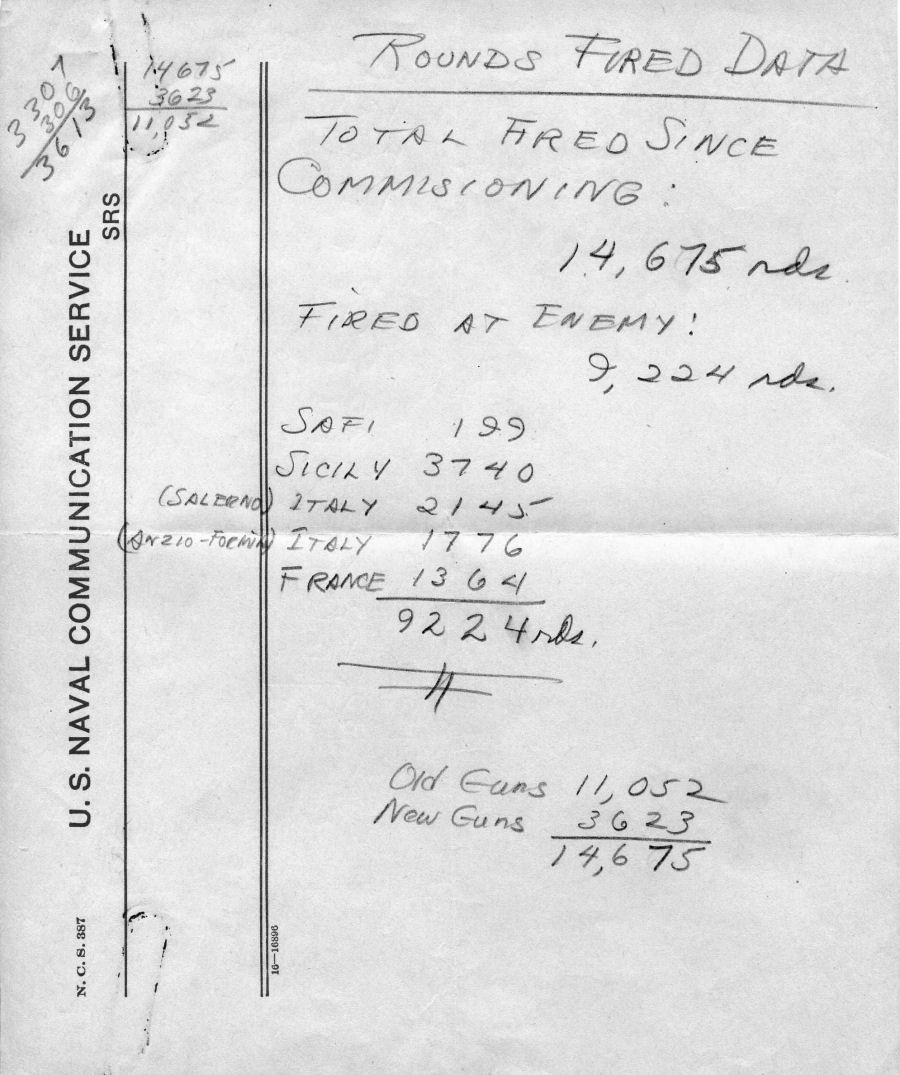 3307
306
3613
14675
3623
11,052
ROUNDS FIRED DATA
TOTAL FIRED SINCE
COMMISIONING:
14,675 rds.
FIRED AT ENEMY:
9,224 rds.
SAFI 199
SICILY 3740
(SALERNO) ITALY 2145
(ANZIO-FORMIA) ITALY 1776
FRANCE 1364
9224 rds.
Old Guns 11,052
New Guns 3623
14,675
U. S. NAVAL COMMUNICATION SERVICE
SRS
N. C. S. 387
16—16896